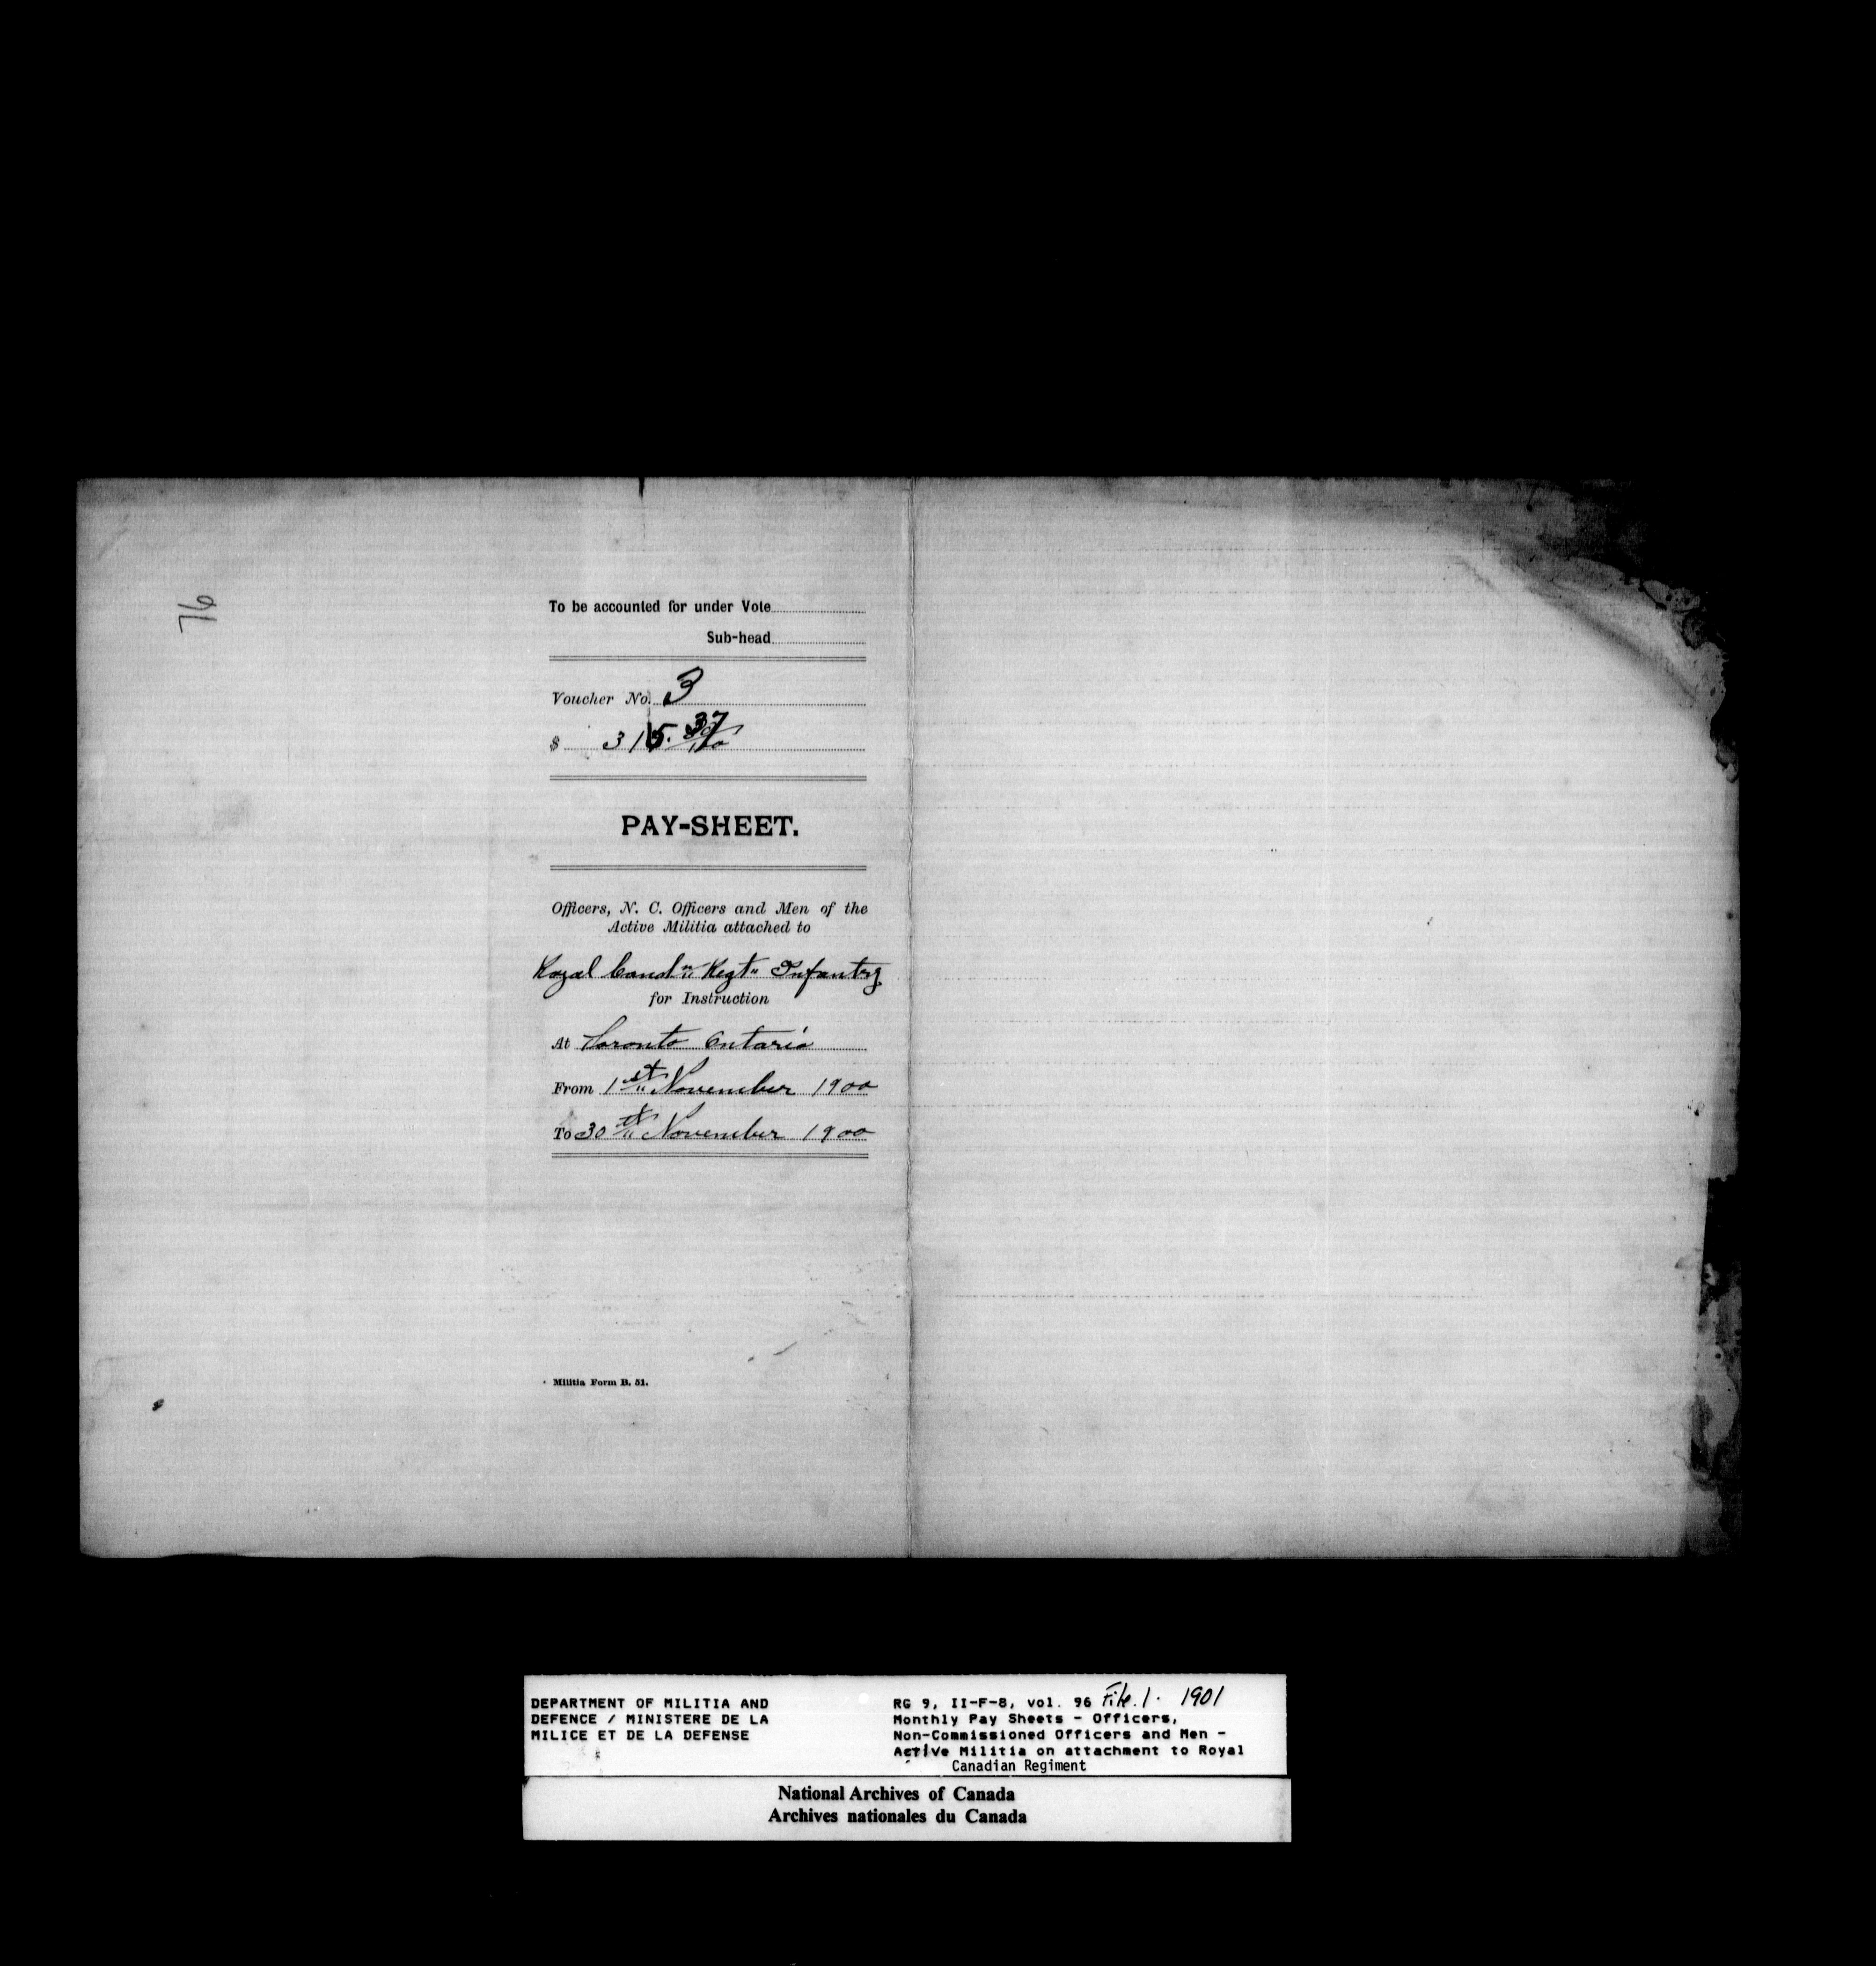 76
To be accounted for under Vote
Sub-head
Voucher No. 3
$ 315. 37/100
PAY-SHEET.
Officers, N. C. Officers and Men of the
Active Militia attached to
Royal Candn Regt Infantry
for Instruction
At Toronto Ontario
From 1st November 1900
To 30th November 1900
Militia Form B. 51.
DEPARTMENT OF MILITIA AND
DEFENCE / MINISTERE DE LA
MILICE ET DE LA DEFENSE
RG 9, II-F-8, vol. 96 File. 1. 1901
Monthly Pay Sheets - Officers,
Non-Commissioned Officers and Men -
Active Militia on attachment to Royal
Canadian Regiment
National Archives of Canada
Archives nationales du Canada